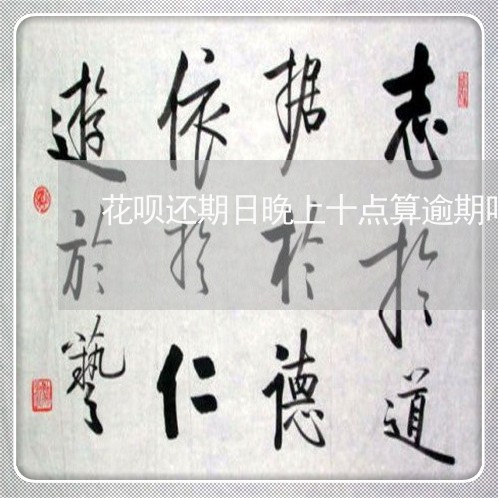 志於道
据於德
依於仁
遊於藝
花呗还期日晚上十点算逾期